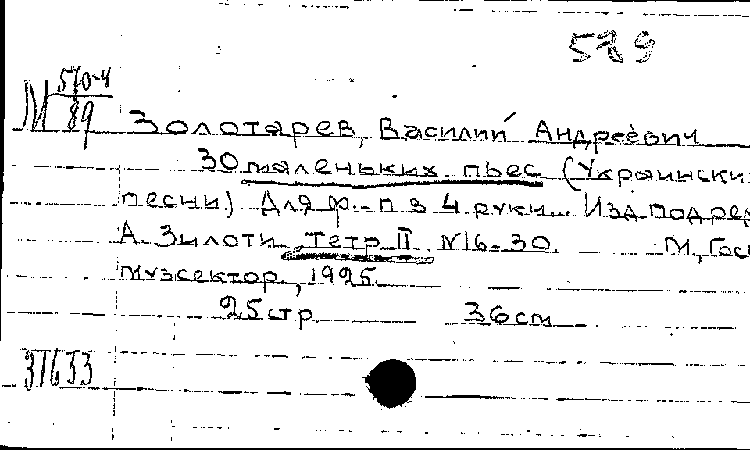 589
М 570-4
89
Золотарев, Василий Андреевич
30 маленьких пьес (Украински
песни) Для ф.-п в 4 руки.. Изд. под ре
А. Зилоти, тетр. II. N16-30. М, Гос
Музсектор, 1925.
25 стр 36 см
31633